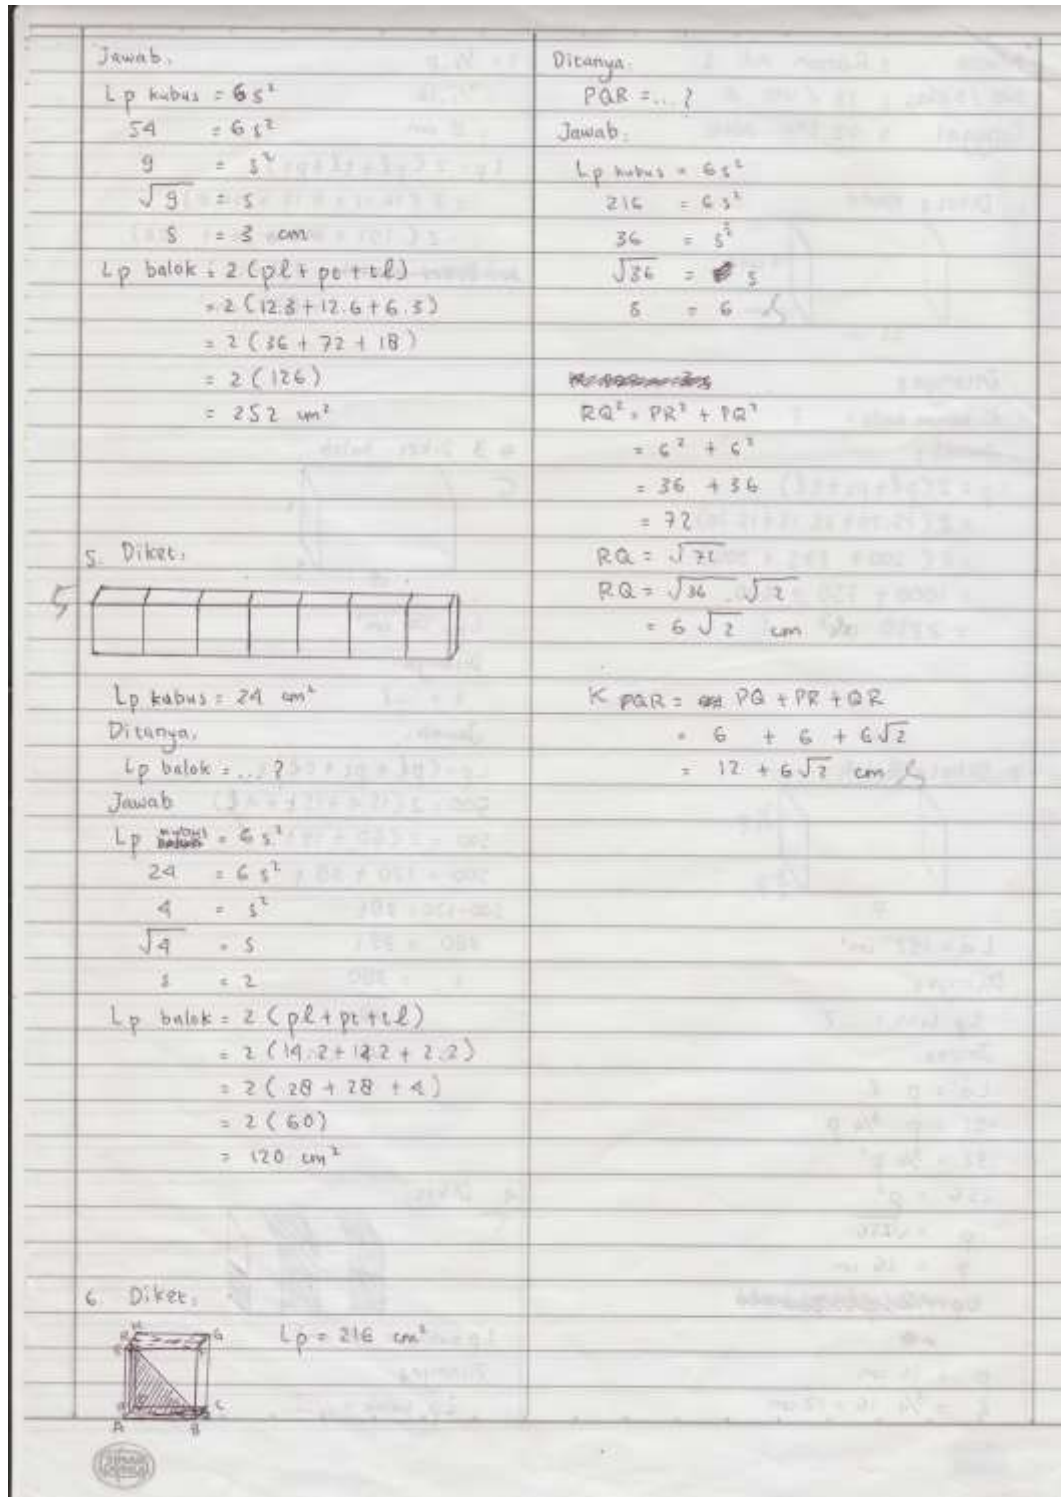 Jawab.
Lp kubus = 6 s²
54 = 6 s²
9 = s²
√9 = s
s = 3 cm
Lp balok = 2 (pl + pt + tl)
= 2 (12.3 + 12.6 + 6.3)
= 2 (36 + 72 + 18)
= 2 (126)
= 252 cm²
5. Diket.
Lp kubus = 24 cm²
Ditanya.
Lp balok = ... ?
Jawab
Lp kubus = 6 s²
24 = 6 s²
4 = s²
√4 = s
s = 2
Lp balok = 2 (pl + pt + tl)
= 2 (14.2 + 14.2 + 2.2)
= 2 (28 + 28 + 4)
= 2 (60)
= 120 cm²
6. Diket.
Lp = 216 cm²
G
C
A B
Ditanya.
PQR = ... ?
Jawab.
Lp kubus = 6s²
216 = 6 s²
36 = s²
√36 = s
s = 6
RQ² = PR² + PQ²
= 6² + 6²
= 36 + 36
= 72
RQ = √72
RQ = √36 . √2
= 6 √2 cm
K PQR = PQ + PR + QR
= 6 + 6 + 6√2
= 12 + 6√2 cm